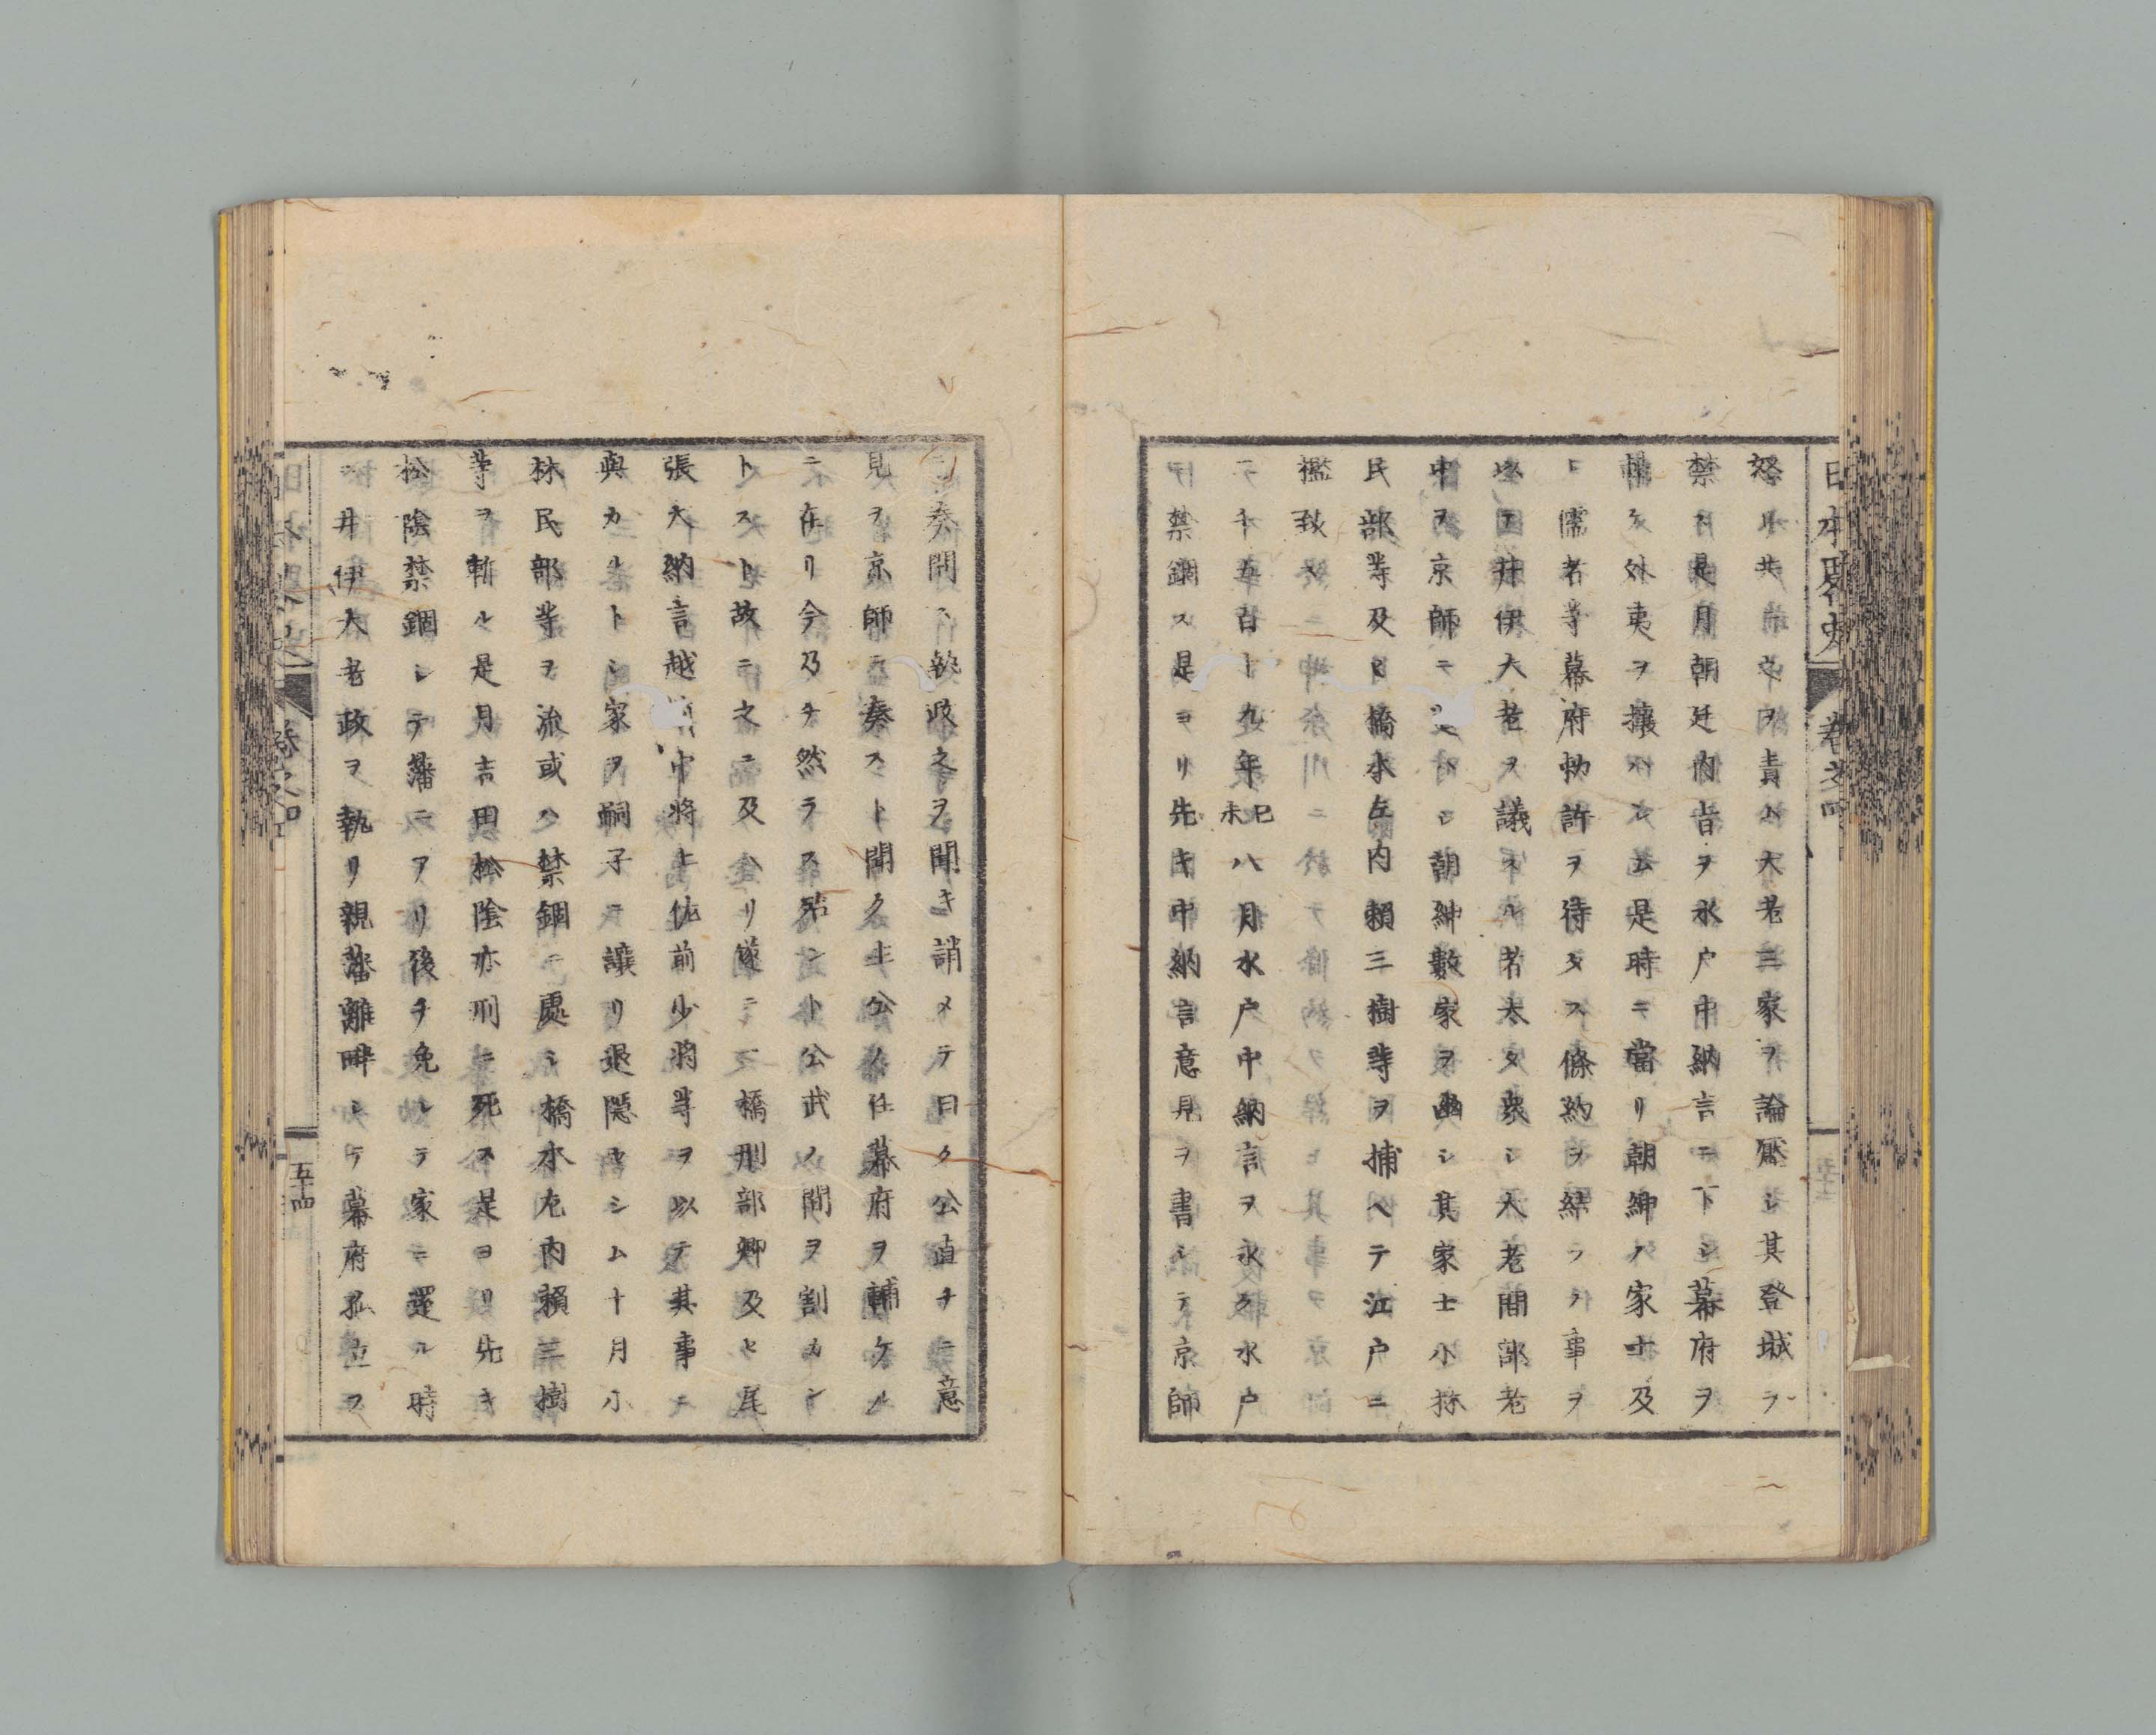 日本畧史 卷之四
怒リ共ニ之ヲ責ム大老三家ヲ論壓シ其登城ヲ
禁ス是月朝廷内旨ヲ水戸中納言ニ下シ幕府ヲ
シ外夷ヲ攘ハシム是時ニ當リ朝紳ノ家士及
ヒ儒者等幕府勅許ヲ待タス條約ヲ結フノ事ヲ
テ井伊大老ヲ議スル者太タ衆シ大老間部老
中ヲ京師ニ シ朝紳數家ヲ幽シ其家士小林
民部等及ヒ橋本左内賴三樹等ヲ捕ヘテ江戸ニ
檻致ス
二千五百十九年己未八月水戸中納言ヲ永ク水戸
ニ禁錮ス是ヨリ先キ中納言意見ヲ書シテ京師
ニ奏聞ス 之ヲ聞キ誚メテ曰ク公直チニ意
見ヲ京師ニ奏スト聞ク 公ノ任幕府ヲ輔クル
ニ在リ今乃チ然ラス 公武ノ間ヲ割カン
トスト故ニ之ニ及ヘリ遂ニ一橋刑部卿及ヒ尾
張大納言越 中將土佐前少將等ヲ以テ其事ニ
與カルトシ家ヲ嗣子ニ讓リ退隱セシム十月小
林民部等ヲ流或ハ禁錮ニ處シ橋本左内賴三樹
等ヲ斬ル是月吉田松陰亦刑ニ死ス是ヨリ先キ
松陰禁錮シテ藩ニアリ後チ免レテ家ニ還ル時
ニ井伊大老政ヲ執リ親藩離畔シテ幕府孤立ス
五十四